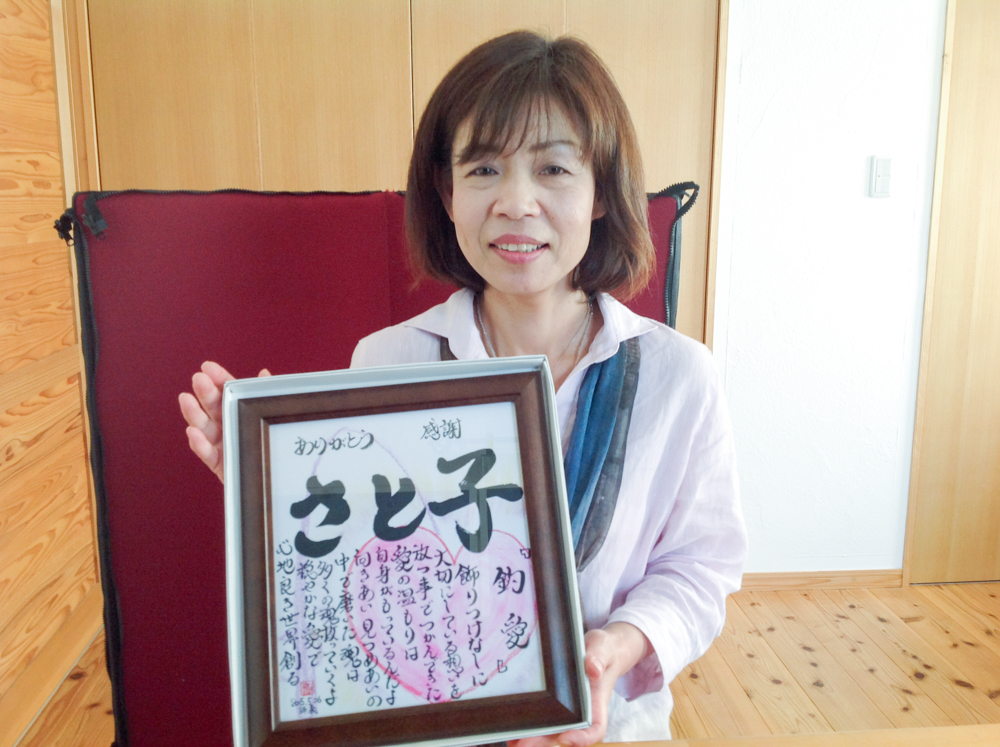 ありがとう
感謝
さと子
『釣愛』
飾りつけなしに
大切にしている想いを
放つ手でつかんできた
愛の温もりは
自身がもっているんだよ
向きあい見つめあいの
中で磨いた魂は
多くの魂救っていくよ
穏やかな愛で
心地良き世界創る